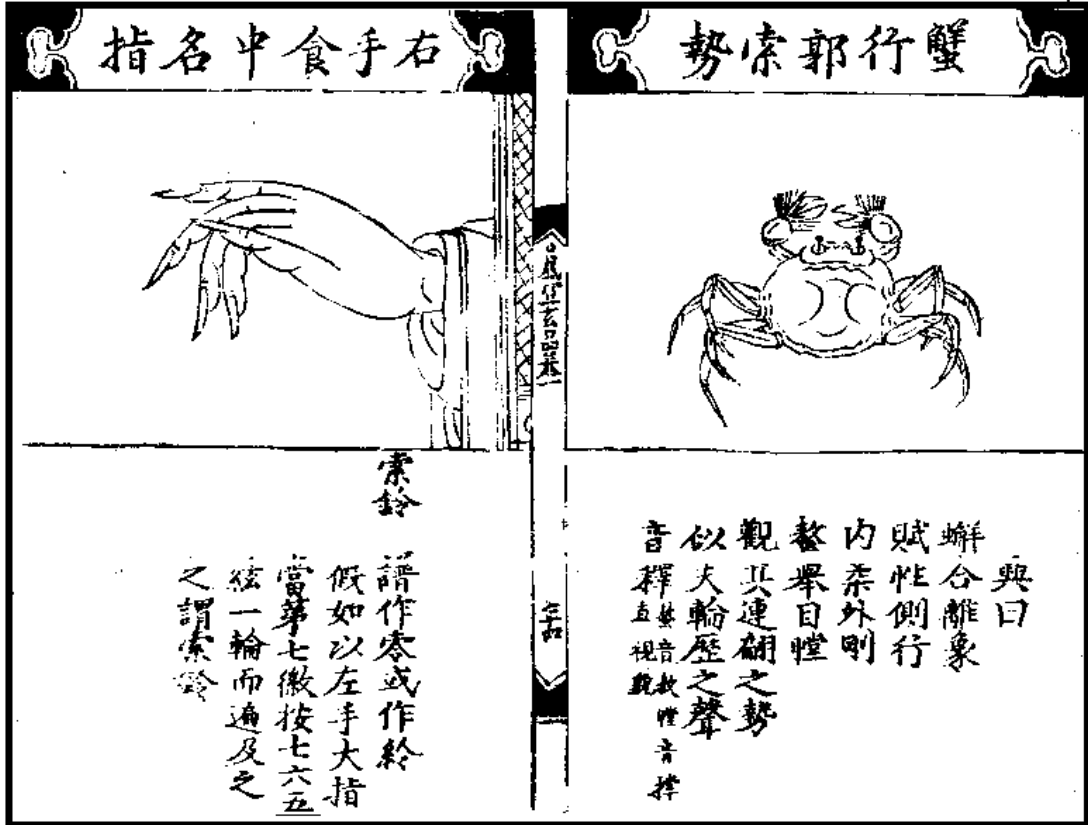 蟹行郭索勢
興曰
蠏合離象
賦性側行
内柔外剛
螯舉目瞠
觀其連翩之勢
似夫輪歷之聲
音釋 螯音敖瞠音撑
直視貌
右手食中名指
索鈴 譜作零或作紷
假如以左手大指
當第七徽按七六五
絃一輪而遍及之
之謂索鈴